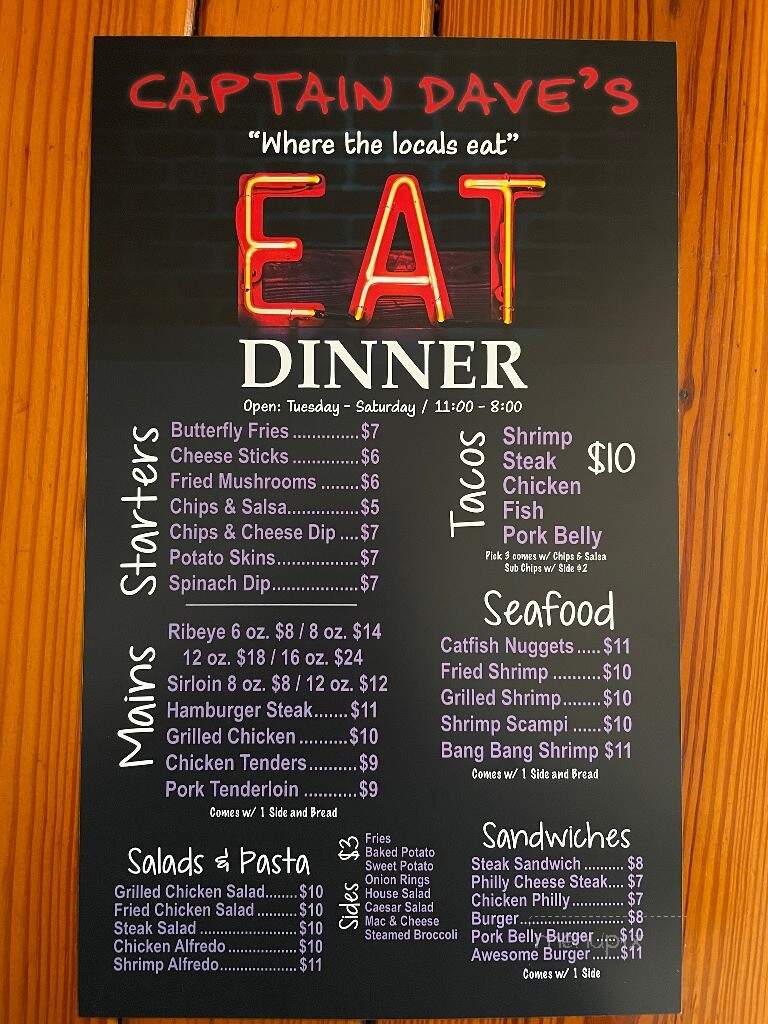 CAPTAIN DAVE'S
"Where the locals eat"
EAT
DINNER
Open: Tuesday - Saturday / 11:00 - 8:00
Starters
Butterfly Fries ..............$7
Cheese Sticks ..............$6
Fried Mushrooms ........$6
Chips & Salsa...............$5
Chips & Cheese Dip ....$7
Potato Skins.................$7
Spinach Dip..................$7
Mains
Ribeye 6 oz. $8 / 8 oz. $14
12 oz. $18 / 16 oz. $24
Sirloin 8 oz. $8 / 12 oz. $12
Hamburger Steak.......$11
Grilled Chicken ..........$10
Chicken Tenders..........$9
Pork Tenderloin ...........$9
Comes w/ 1 Side and Bread
Tacos
Shrimp
Steak
Chicken
Fish
Pork Belly
$10
Pick 3 comes w/ Chips & Salsa
Sub Chips w/ Side $2
Seafood
Catfish Nuggets.....$11
Fried Shrimp .........$10
Grilled Shrimp.......$10
Shrimp Scampi ......$10
Bang Bang Shrimp $11
Comes w/ 1 Side and Bread
Salads & Pasta
Grilled Chicken Salad.......$10
Fried Chicken Salad .........$10
Steak Salad .....................$10
Chicken Alfredo ...............$10
Shrimp Alfredo.................$11
Sides $3
Fries
Baked Potato
Sweet Potato
Onion Rings
House Salad
Caesar Salad
Mac & Cheese
Steamed Broccoli
Sandwiches
Steak Sandwich .......... $8
Philly Cheese Steak.... $7
Chicken Philly............. $7
Burger......................... $8
Pork Belly Burger .... $10
Awesome Burger.......$11
Comes w/ 1 Side
menupix